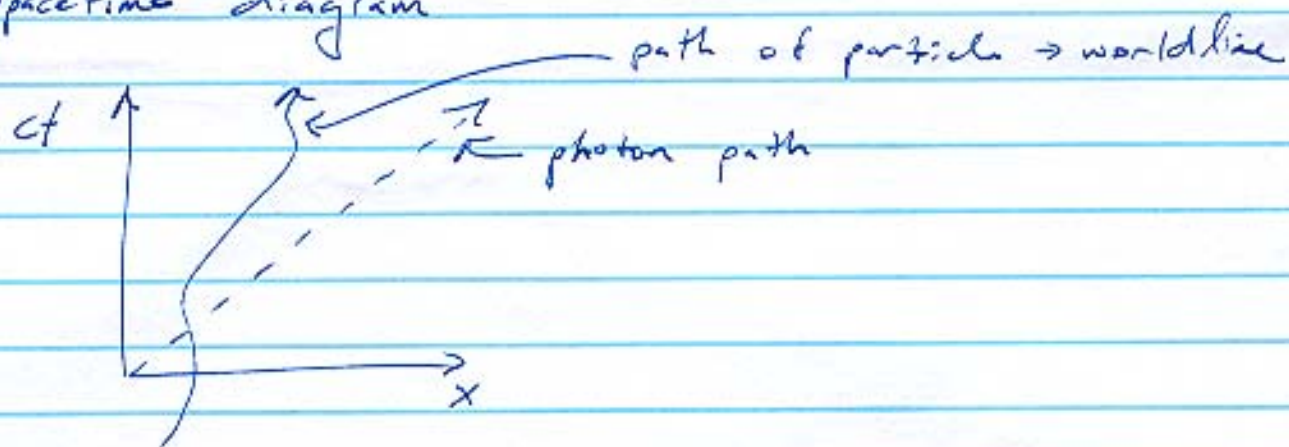 spacetime diagram
path of particle → worldline
ct
photon path
x